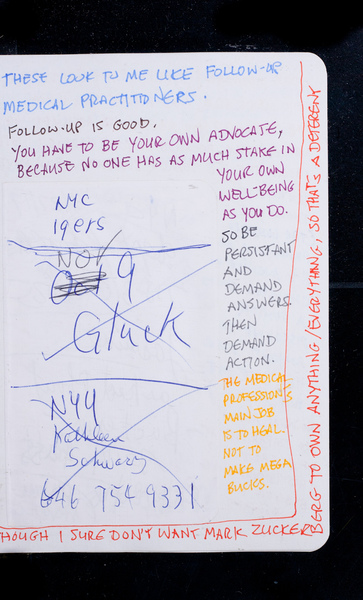 THESE LOOK TO ME LIKE FOLLOW-UP
MEDICAL PRACTITIONERS.
FOLLOW-UP IS GOOD.
YOU HAVE TO BE YOUR OWN ADVOCATE,
BECAUSE NO ONE HAS AS MUCH STAKE IN
YOUR OWN
WELL-BEING
AS YOU DO.
SO BE
PERSISTANT
AND
DEMAND
ANSWERS.
THEN
DEMAND
ACTION.
THE MEDICAL
PROFESSION'S
MAIN JOB
IS TO HEAL.
NOT TO
MAKE MEGA
BUCKS.
NYC
19ers
NOV
Oct 9
Gluck
NYU
Kathleen
Schwarz
646 754 9331
THOUGH I SURE DON'T WANT MARK ZUCKER
BERG TO OWN ANYTHING/EVERYTHING, SO THAT'S A DETERENT